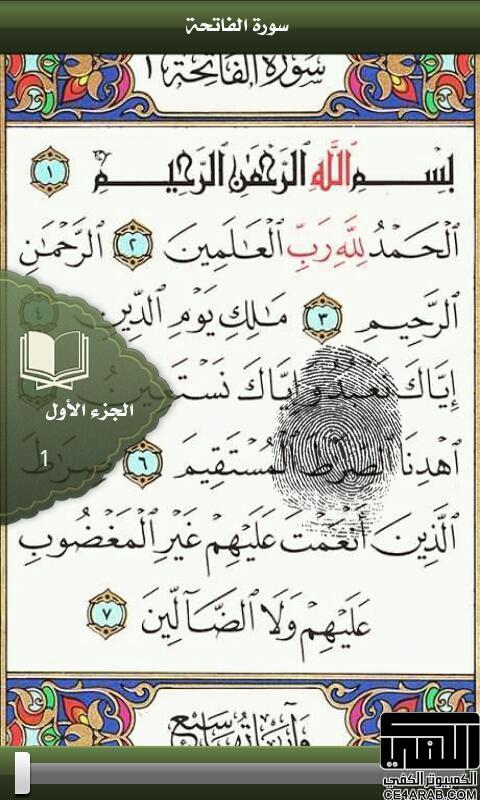 سورة الفاتحة
سُورَةُ الفَاتِحَة ١
بِسْمِ ٱللَّهِ ٱلرَّحْمَٰنِ ٱلرَّحِيمِ ١
ٱلْحَمْدُ لِلَّهِ رَبِّ ٱلْعَٰلَمِينَ ٢ ٱلرَّحْمَٰنِ
ٱلرَّحِيمِ ٣ مَٰلِكِ يَوْمِ ٱلدِّينِ ٤
إِيَّاكَ نَعْبُدُ وَإِيَّاكَ نَسْتَعِينُ
ٱهْدِنَا ٱلصِّرَٰطَ ٱلْمُسْتَقِيمَ ٦ صِرَٰطَ
ٱلَّذِينَ أَنْعَمْتَ عَلَيْهِمْ غَيْرِ ٱلْمَغْضُوبِ
عَلَيْهِمْ وَلَا ٱلضَّآلِّينَ ٧
الجزء الأول
1
وَآيَاتُهَا سَبْع
اللفي
الكمبيوتر الكفي
CE4ARAB.COM